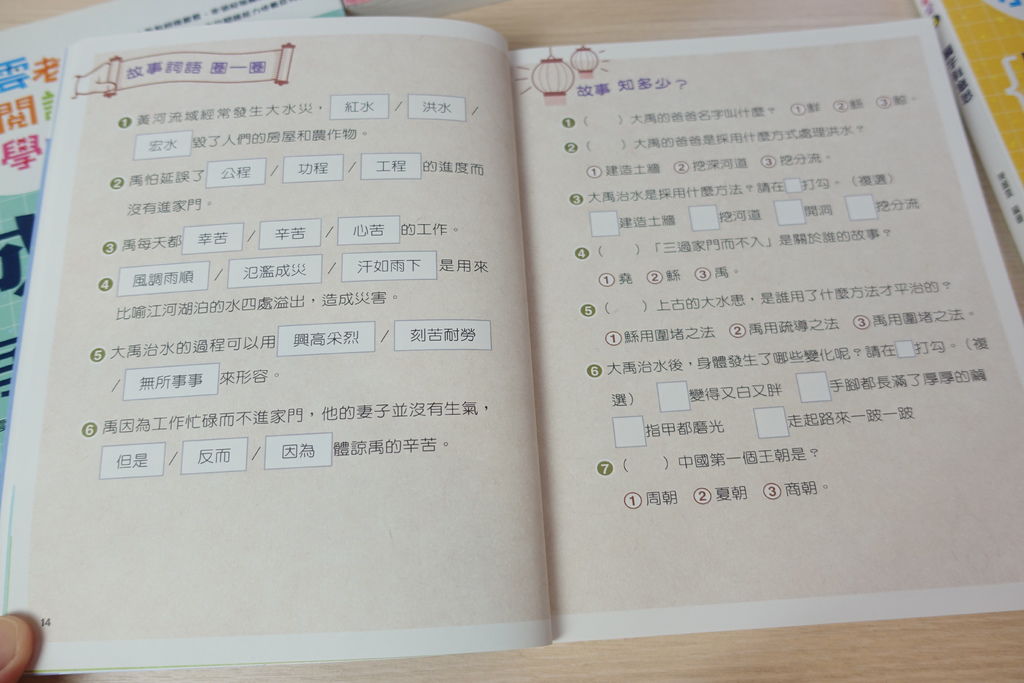 故事詞語 圈一圈
❶ 黃河流域經常發生大水災， 紅水 / 洪水 /
宏水 毀了人們的房屋和農作物。
❷ 禹怕延誤了 公程 / 功程 / 工程 的進度而
沒有進家門。
❸ 禹每天都 幸苦 / 辛苦 / 心苦 的工作。
❹ 風調雨順 / 氾濫成災 / 汗如雨下 是用來
比喻江河湖泊的水四處溢出，造成災害。
❺ 大禹治水的過程可以用 興高采烈 / 刻苦耐勞
/ 無所事事 來形容。
❻ 禹因為工作忙碌而不進家門，他的妻子並沒有生氣，
但是 / 反而 / 因為 體諒禹的辛苦。
14
故事 知多少？
❶（ ）大禹的爸爸名字叫什麼？ ①鮮 ②鯀 ③鯨。
❷（ ）大禹的爸爸是採用什麼方式處理洪水？
①建造土牆 ②挖深河道 ③挖分流。
❸ 大禹治水是採用什麼方法？請在□打勾。（複選）
□建造土牆 □挖河道 □開洞 □挖分流
❹（ ）「三過家門而不入」是關於誰的故事？
①堯 ②鯀 ③禹。
❺（ ）上古的大水患，是誰用了什麼方法才平治的？
①鯀用圍堵之法 ②禹用疏導之法 ③禹用圍堵之法。
❻ 大禹治水後，身體發生了哪些變化呢？請在□打勾。（複
選） □變得又白又胖 □手腳都長滿了厚厚的繭
□指甲都磨光 □走起路來一跛一跛
❼（ ）中國第一個王朝是？
①周朝 ②夏朝 ③商朝。